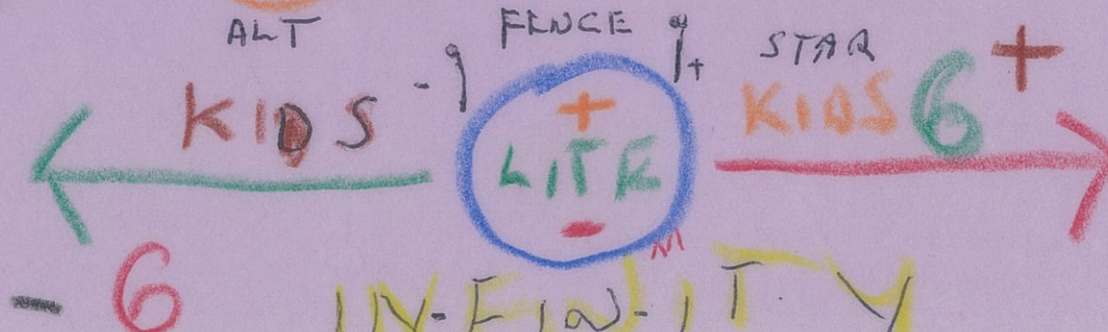 ALT FENCE STAR
KIDS - + KIDS 6+
+
LITE
-
- 6 IN-FIN-ITY